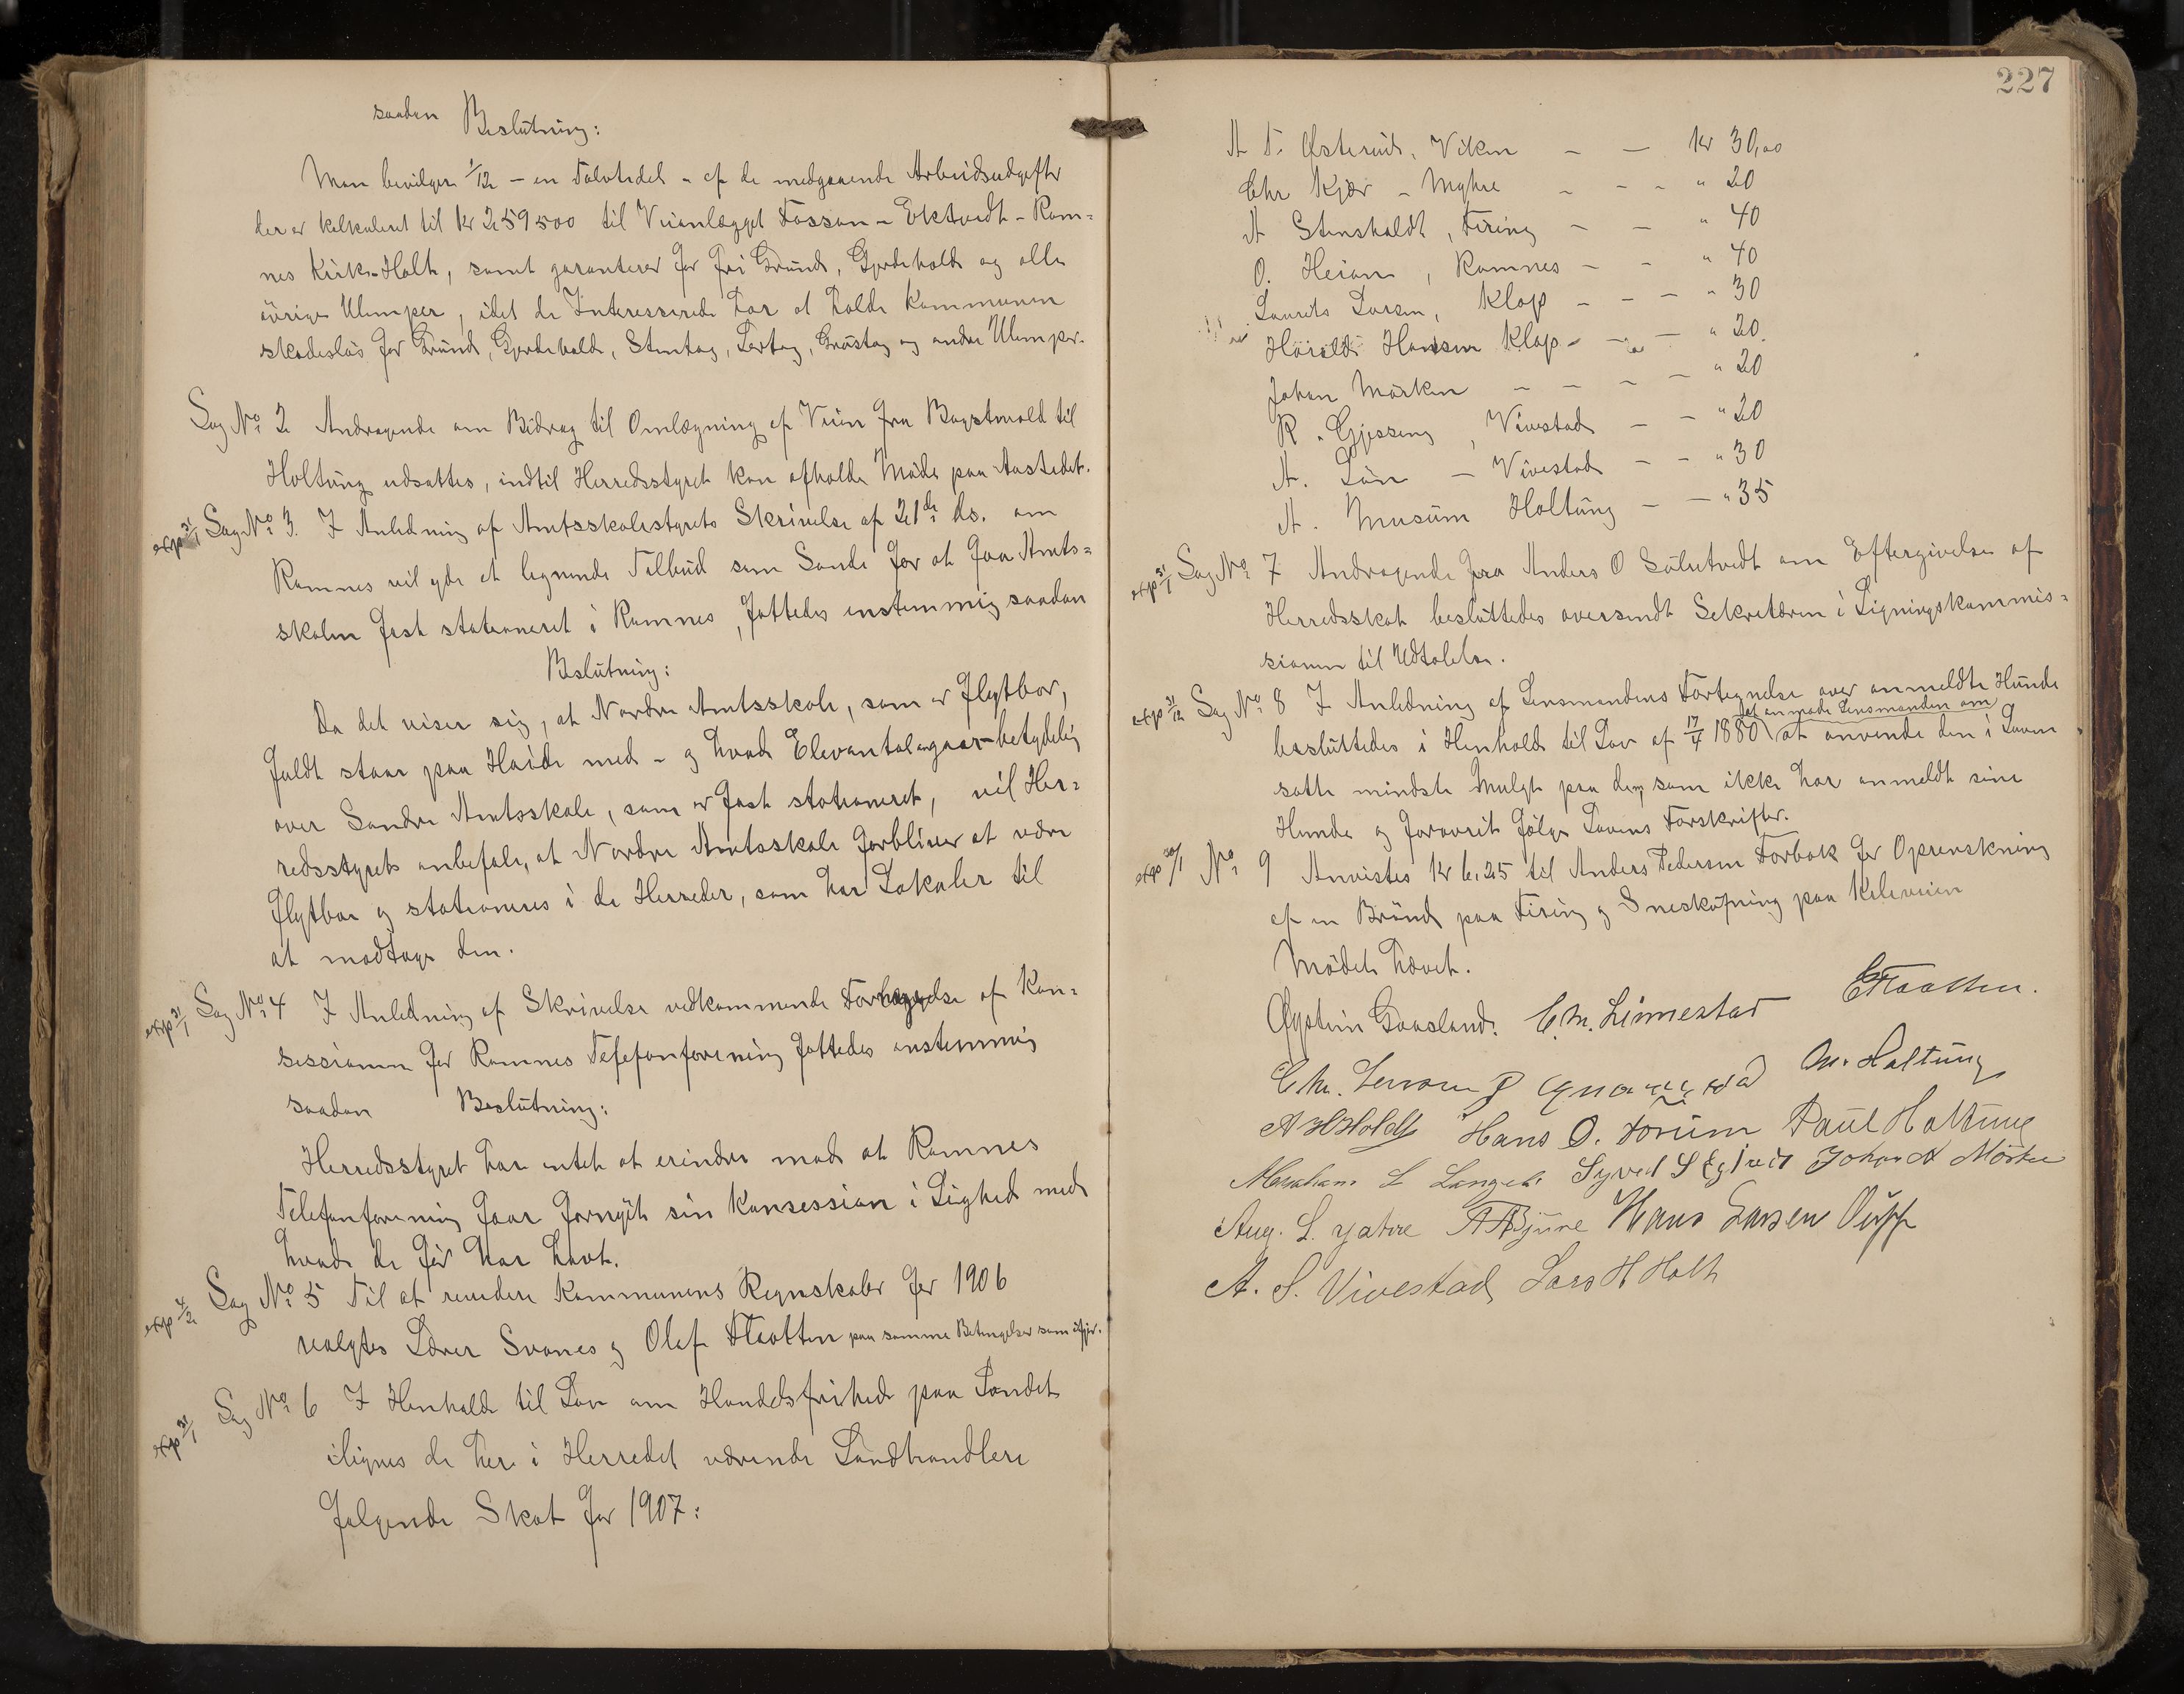 saadan Beslutning:
Man bevilger 1/12 – en Tolvtedel – af de medgaaende Arbeidsudgifter
der er kalkuleret til Kr 259500 til Veianlægget Fossan – Ektvedt – Ram=
nes Kirke-Holt, samt garanterer for fri Grund, Gjærdehold og alle
øvrige Ulemper, idet de Interesserede har at holde Kommunen
skadesløs for Grund, Gjærdehold, Stentag, Lertag, Grustag og andre Ulemper.
Sag No 2 Andragende om Bidrag til Omlægning af Veien fra Bogstvold til
Holtung udsattes, indtil Herredsstyret kan afholde Møde paa Aastedet.
exp 31/1 Sag No 3. I Anledning af Amtsskolestyrets Skrivelse af 21de ds. om
Ramnes vil yde et lignende Tilbud som Sande for at faa Amts=
skolen fast stationeret i Ramnes, fattedes enstemmig saadan
Beslutning:
Da det viser sig, at Nordre Amtsskole, som er flytbar,
fuldt staar paa Høide med – og hvad Elevantal angaar – betydelig
over Søndre Amtsskole, som er fast stationeret, vil Her=
redsstyret anbefale, at Nordre Amtsskole forbliver at være
flytbar og stationeres i de Herreder, som har Lokaler til
at modtage den.
exp 31/1 Sag No 4 I Anledning af Skrivelse vedkommende Forlængelse af Kon=
sessionen for Ramnes Telefonforening fattedes enstemmig
saadan Beslutning:
Herredsstyret har intet at erindre mod at Ramnes
Telefonforening faar fornyet sin Konsession i Lighed med
hvad de før har havt.
exp 4/2 Sag No 5 Til at revidere Kommunens Regnskaber for 1906
valgtes Lærer Svanes og Olaf Flaatten paa samme Betingelser som ifjor.
exp 31/1 Sag No 6 I Henhold til Lov om Handelsfrihed paa Landet
ilignes de her i Herredet værende Landhandlere
følgende Skat for 1907:
227
A T. Østerud, Viken – – Kr 30,00
Chr Kjær – Myhre – – – " 20
A Stensholdt, Firing – – " 40
O. Heian, Ramnes – – " 40
Laurits Larsen, Klop – – – " 30
Harald Hansen Klop – – – " 20.
Johan Mørken – – – – " 20
R. Gjessing, Vivestad – – " 20
A. Løn – Vivestad – – " 30
A. Musum Holtung – – " 35
exp 31/1 Sag No 7 Andragende fra Anders O Sulutvedt om Eftergivelse af
Herredsskat besluttedes oversendt Sekretæren i Ligningskommis=
sionen til Udtalelse.
exp 31/12 Sag No 8 I Anledning af Lensmandens Fortegnelse over anmeldte Hunde
besluttedes i Henhold til Lov af 17/4 1880 at anmode Lensmanden om at anvende den i Loven
satte mindste Mulgt paa dem, som ikke har anmeldt sine
Hunde og forøvrit følge Lovens Forskrifter.
exp 30/1 No 9 Anvistes Kr 6,25 til Anders Pedersen Forbok for Oprenskning
af en Brønd paa Firing og Sneskufning paa Kileveien
Mødet hævet.
Øystein Gaasland. C. M. Linnestad Flaatten.
C. M. M. Holtung
Hans O. Forum Paul Holtung
Abraham L Langeb. Syvert S Johan A Mørken
Aug. L. Hans Larsen
A. S. Vivestad, Lars H Holt